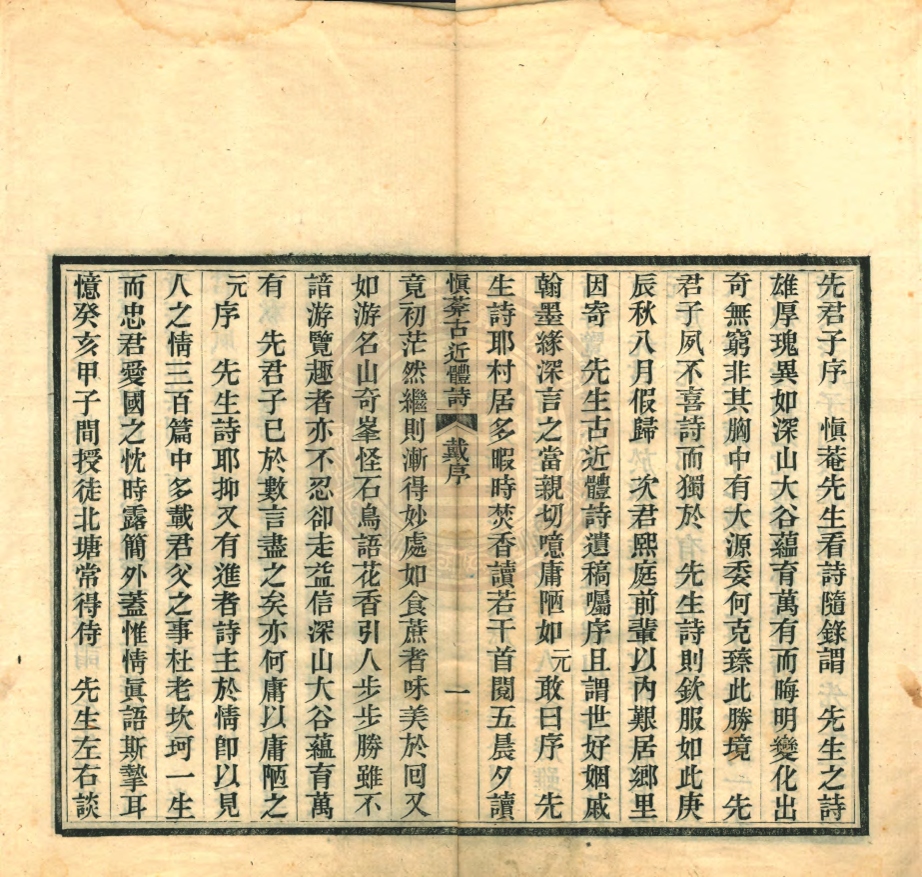 先君子序　愼菴先生看詩隨錄謂　先生之詩
雄厚瑰異如深山大谷蘊育萬有而晦明變化出
奇無窮非其胸中有大源委何克臻此勝境　先
君子夙不喜詩而獨於　先生詩則欽服如此庚
辰秋八月假歸　次君熙庭前輩以內艱居鄉里
因寄　先生古近體詩遺稿囑序且謂世好姻戚
翰墨緣深言之當親切噫庸陋如元敢曰序　先
生詩耶村居多暇時焚香讀若干首閱五晨夕讀
愼菴古近體詩　戴序　一
竟初茫然繼則漸得妙處如食蔗者味美於囘又
如游名山奇峯怪石鳥語花香引人步步勝雖不
諳游覽趣者亦不忍卻走益信深山大谷蘊育萬
有　先君子已於數言盡之矣亦何庸以庸陋之
元序　先生詩耶抑又有進者詩主於情卽以見
人之情三百篇中多載君父之事杜老坎坷一生
而忠君愛國之忱時露簡外蓋惟情眞語斯摯耳
憶癸亥甲子間授徒北塘常得侍　先生左右談